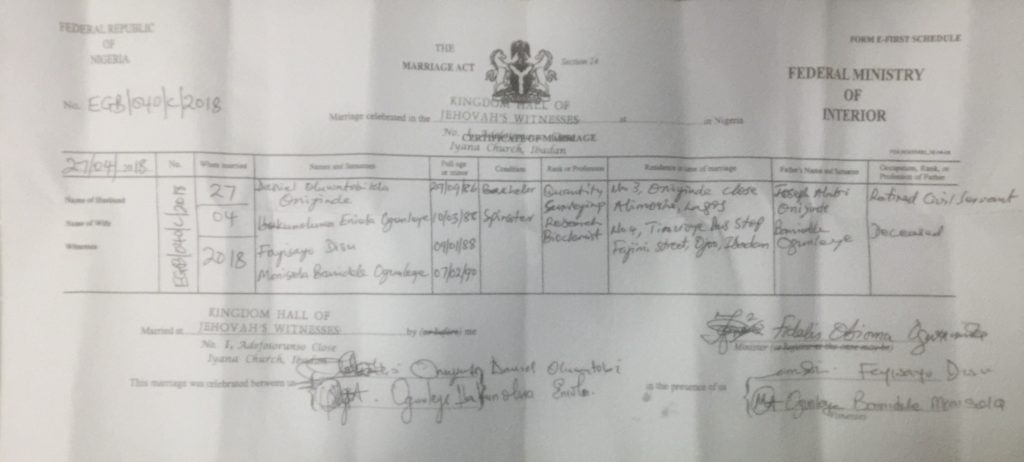 FEDERAL REPUBLIC
OF
NIGERIA
THE
MARRIAGE ACT
Section 24
FORM E-FIRST SCHEDULE
FEDERAL MINISTRY
OF
INTERIOR
No. EGB/040/C/2018
KINGDOM HALL OF
Marriage celebrated in the JEHOVAH'S WITNESSES at in Nigeria
No. 1, Adefosorunso Close
CERTIFICATE OF MARRIAGE
Iyana Church, Ibadan
27/04/2018 No. When married Names and Surnames Full age or minor Condition Rank or Profession Residence at time of marriage Father's Name and Surname Occupation, Rank, or Profession of Father
Name of Husband 27 Daniel Oluwatobiloba Oniginde 27/09/86 Bachelor Quantity Surveying No 3, Oniginde close Alimosho, Lagos Joseph Oniginde Retired Civil Servant
Name of Wife 04 Eniola Ogunleye 10/03/88 Spinster Research Biochemist No 4, Bus Stop Fajimi street, Ojoo, Ibadan Bamidele Ogunleye Deceased
Witnesses 2018 Disu 09/01/88
Monisola Bamidele Ogunleye 07/02/90
EGB/040/C/2018
KINGDOM HALL OF
Married at JEHOVAH'S WITNESSES by (or before) me
No. 1, Adefosorunso Close
Iyana Church, Ibadan
Fidelis Obioma
Minister
This marriage was celebrated between us Daniel Oluwatobi
Ogunleye Eniola
in the presence of us Disu
Ogunleye Bamidele Monisola
Witnesses